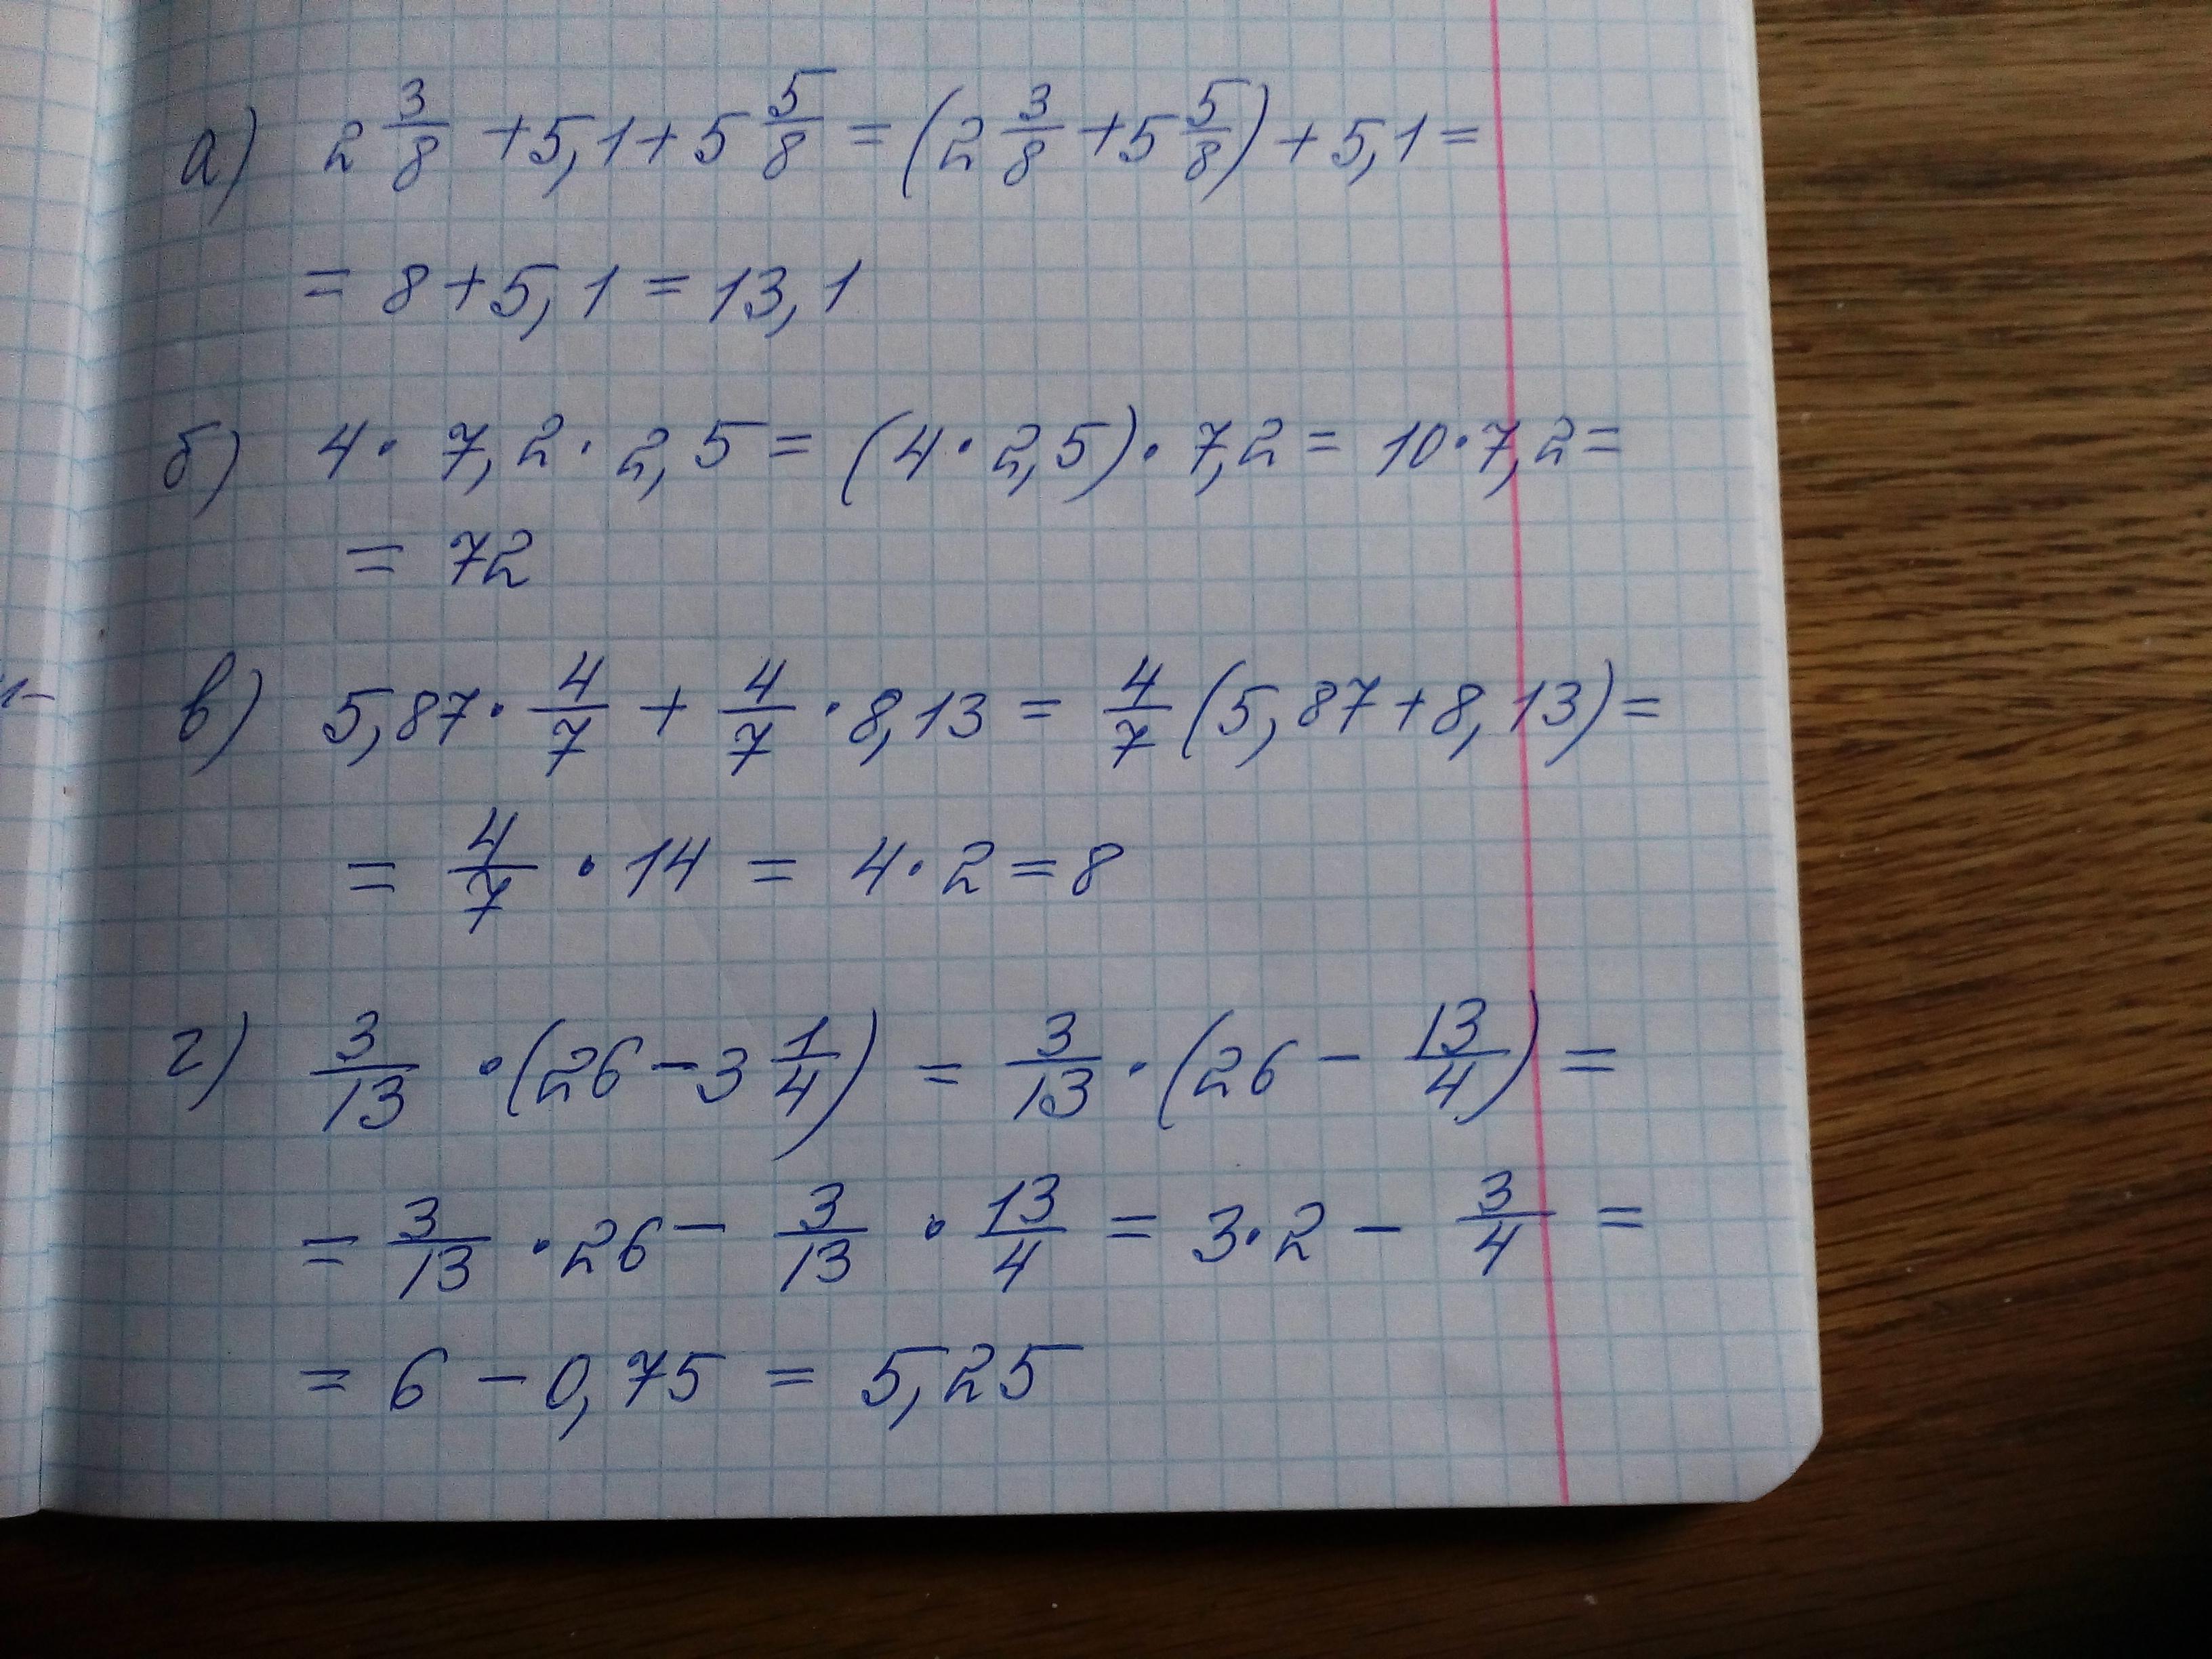 а) 2 3/8 + 5,1 + 5 5/8 = (2 3/8 + 5 5/8) + 5,1 =
= 8 + 5,1 = 13,1
б) 4 · 7,2 · 2,5 = (4 · 2,5) · 7,2 = 10 · 7,2 =
= 72
в) 5,87 · 4/7 + 4/7 · 8,13 = 4/7 (5,87 + 8,13) =
= 4/7 · 14 = 4 · 2 = 8
г) 3/13 · (26 − 3 1/4) = 3/13 · (26 − 13/4) =
= 3/13 · 26 − 3/13 · 13/4 = 3 · 2 − 3/4 =
= 6 − 0,75 = 5,25